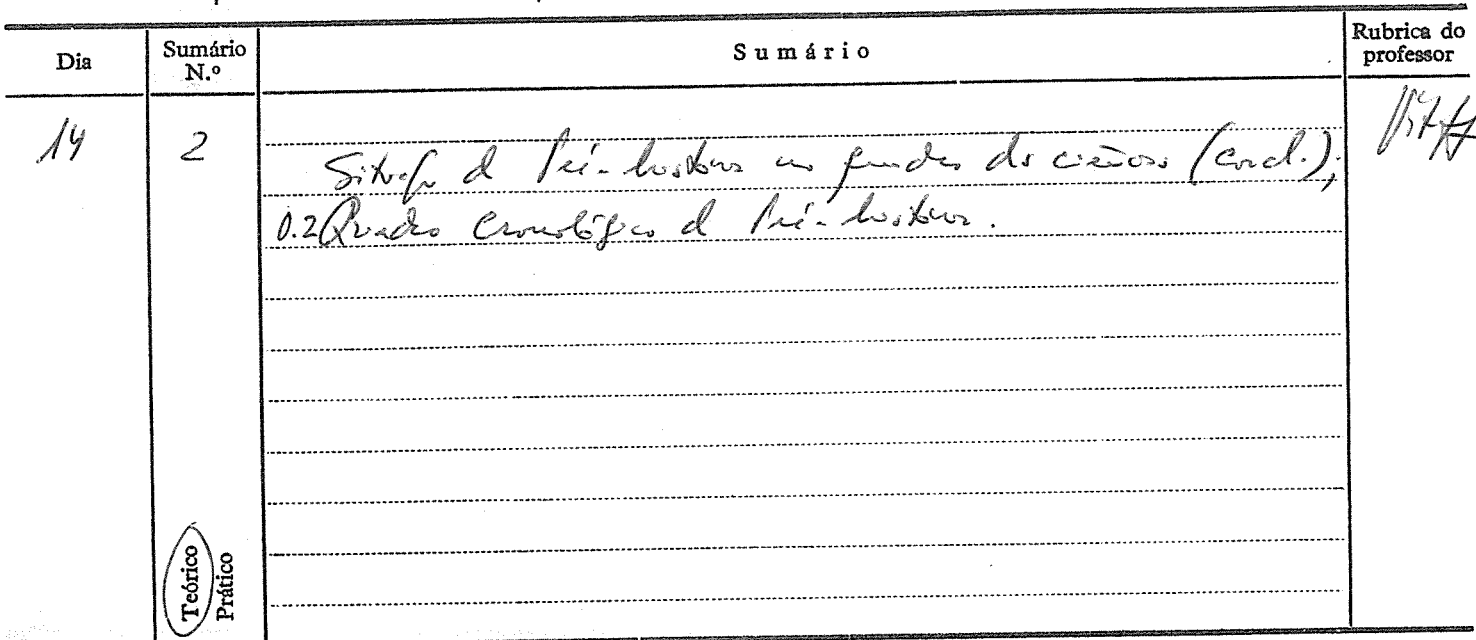 Dia
Sumário N.º
Sumário
Rubrica do professor
14
2
Situação da Pré-história no quadro das ciências (concl.);
0.2 Quadro cronológico da Pré-história.
Teórico
Prático